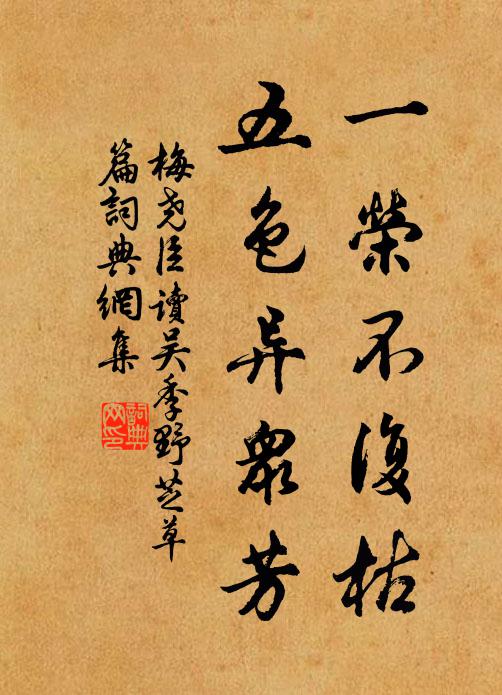 一榮不復枯
五色异衆芳
梅尧臣讀吴季野芝草
篇詞典網集
詞典
网印